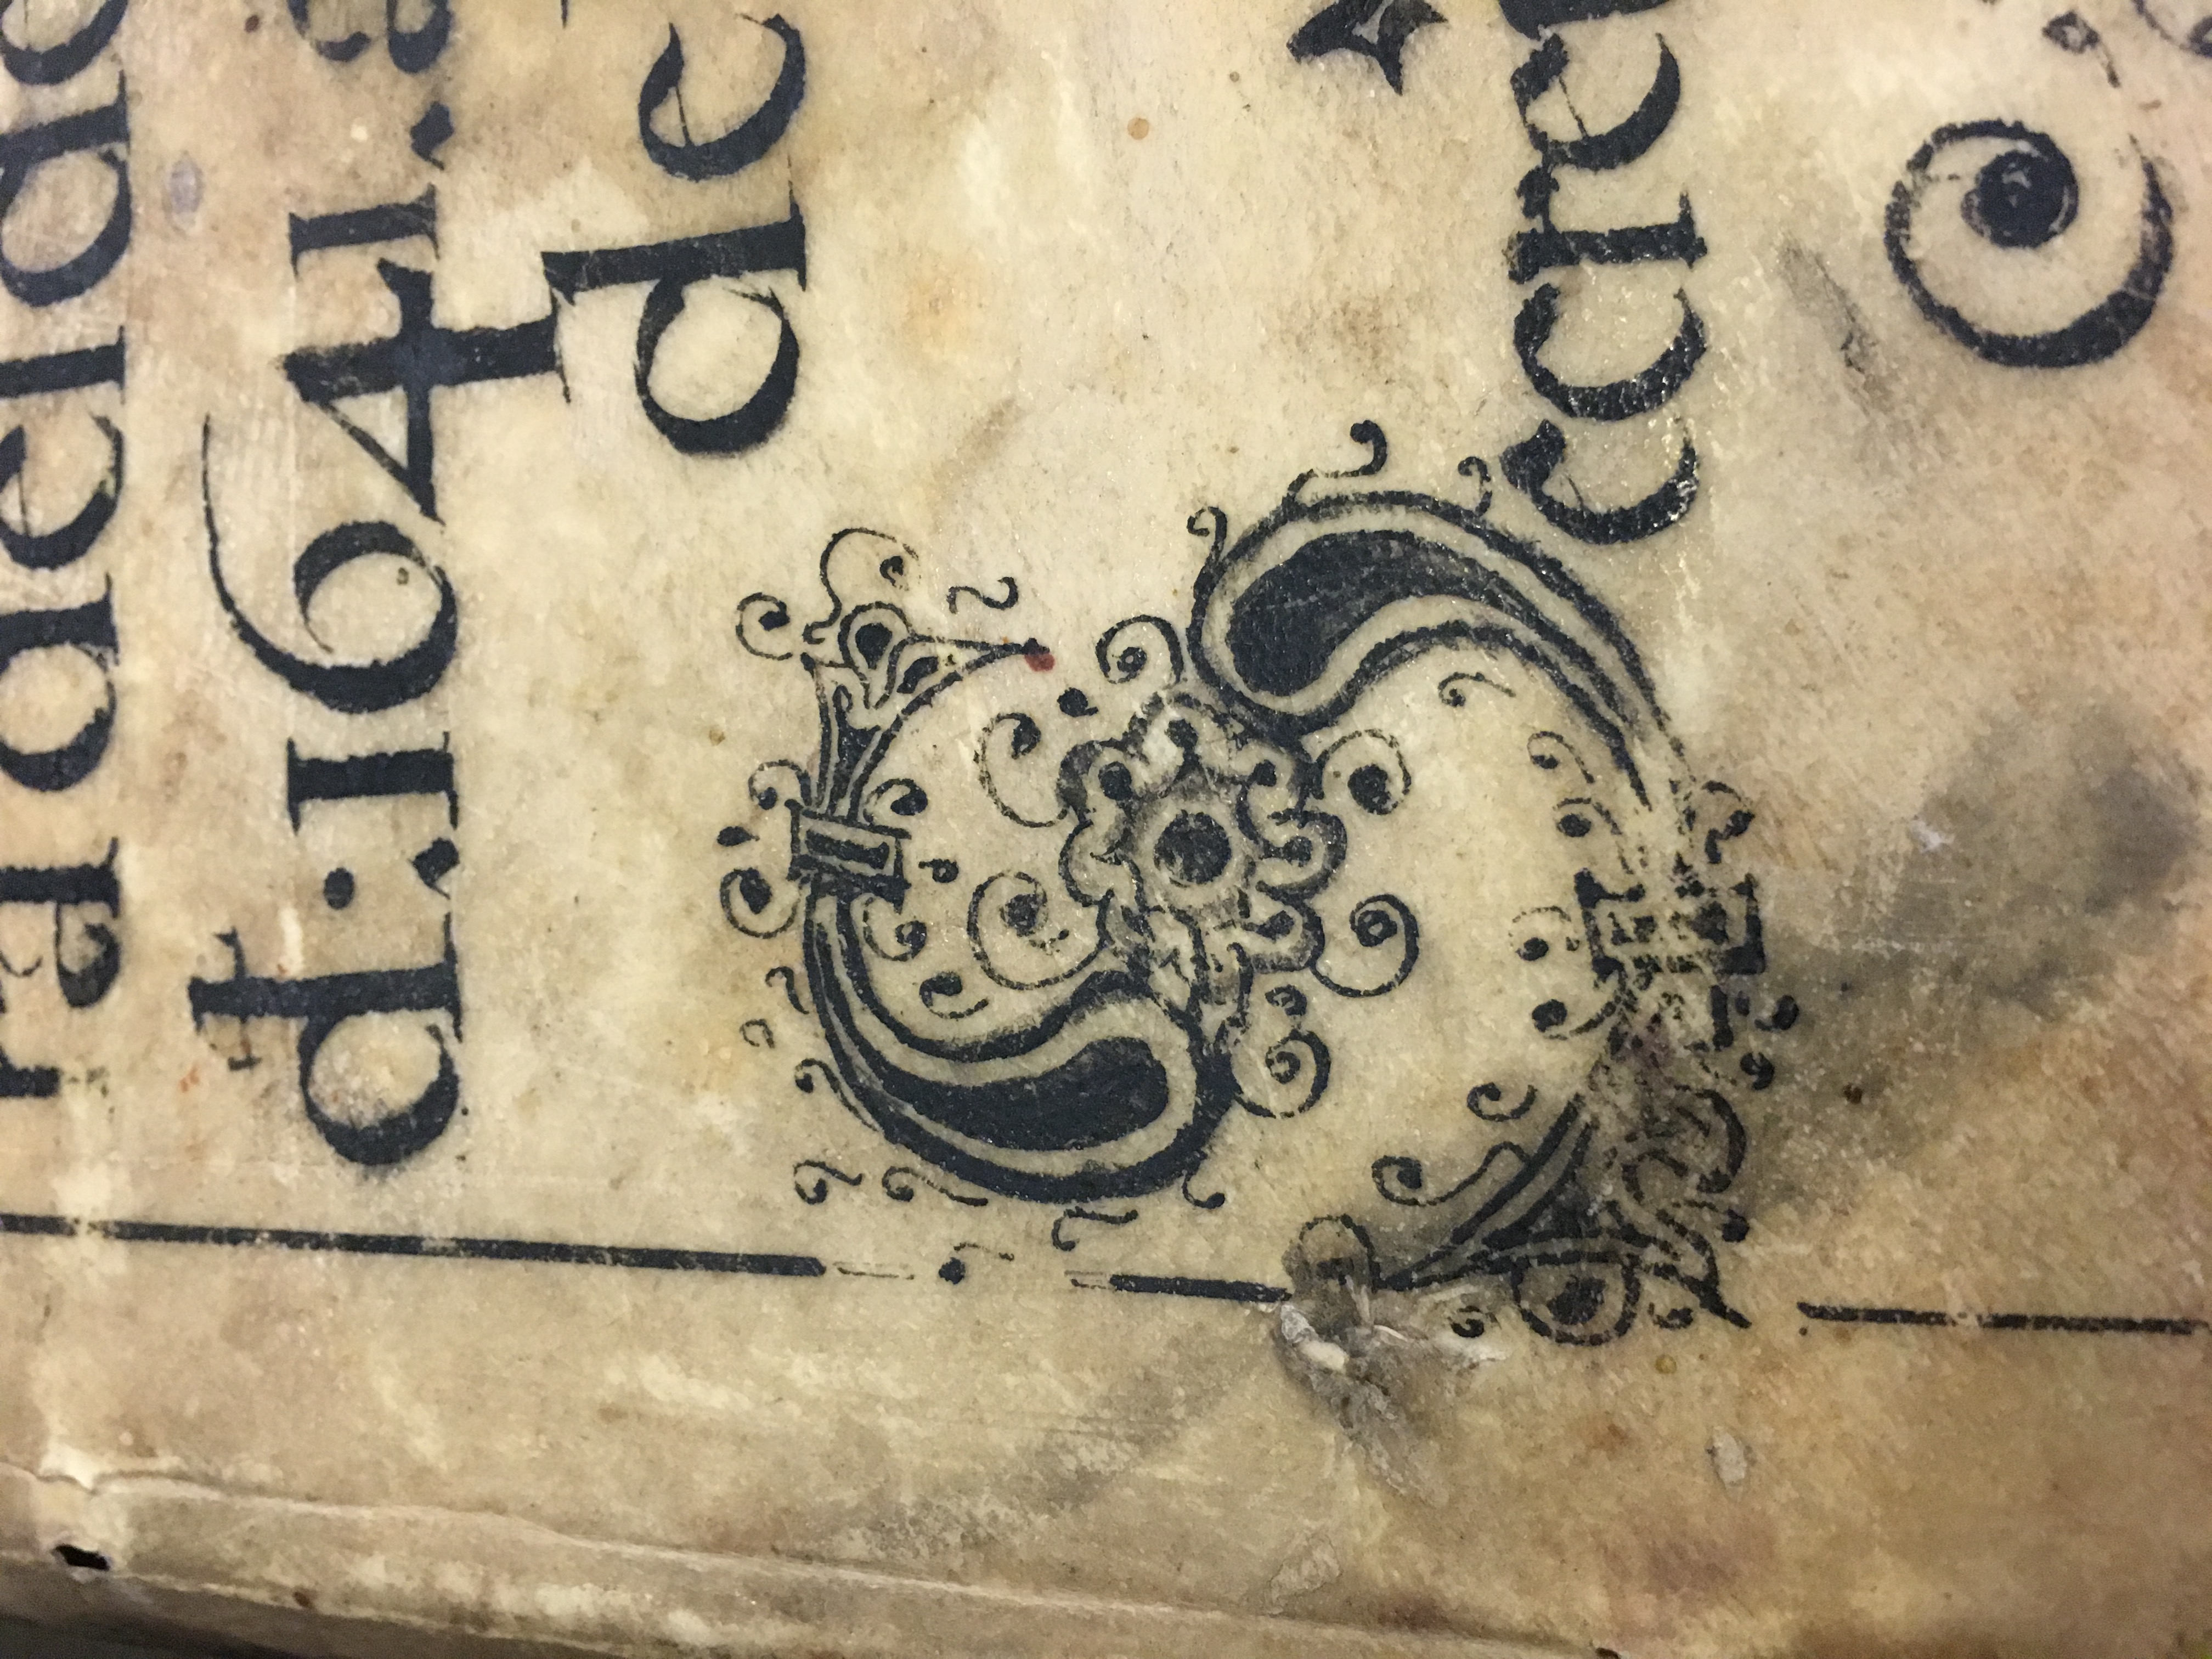 ra del de
đ:1641.a
de
Secret